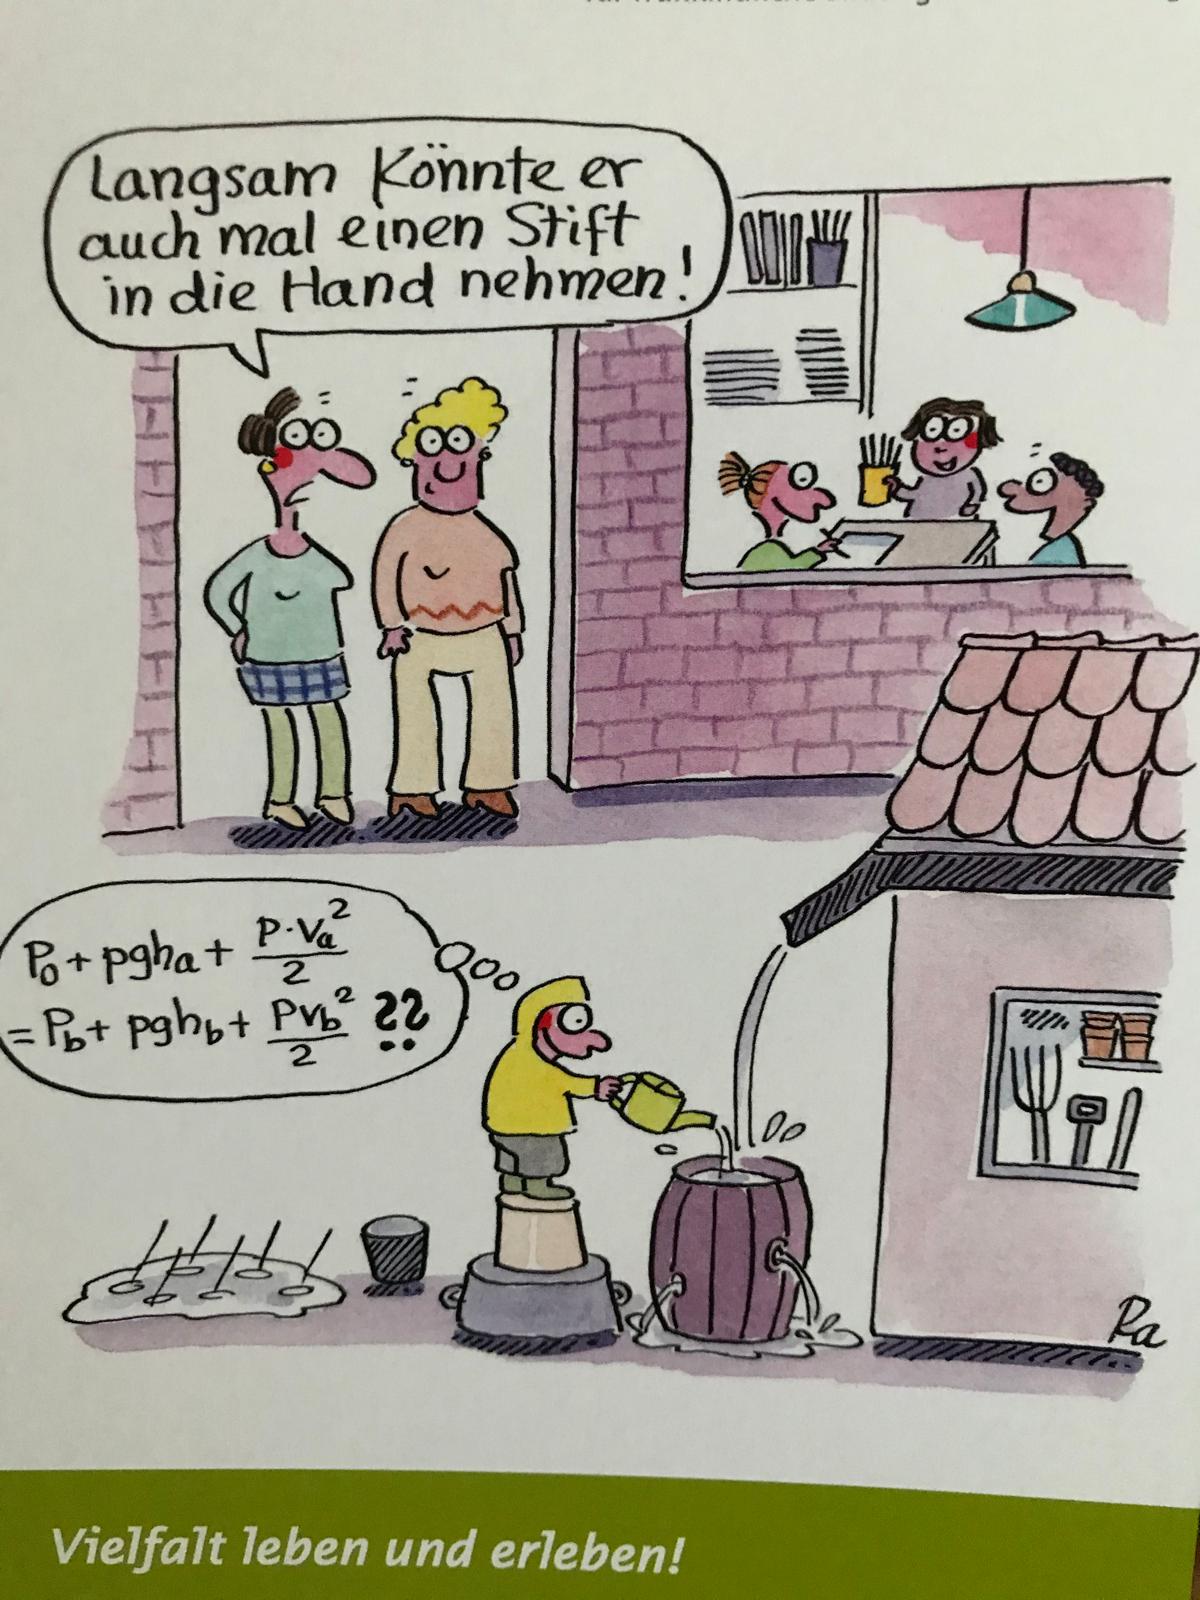 Langsam könnte er
auch mal einen Stift
in die Hand nehmen!
P₀ + pghₐ + P·Vₐ²/2
= P_b + pgh_b + PV_b²/2 ??
Ra
Vielfalt leben und erleben!